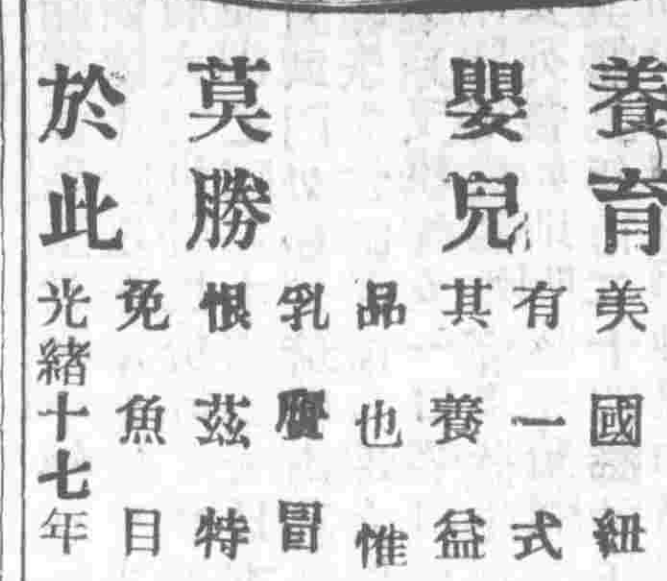 養育
嬰兒
莫勝
於此
美國紐
有一式
其養益
品也惟
乳贗冒
恨茲特
免魚目
光緒十七年